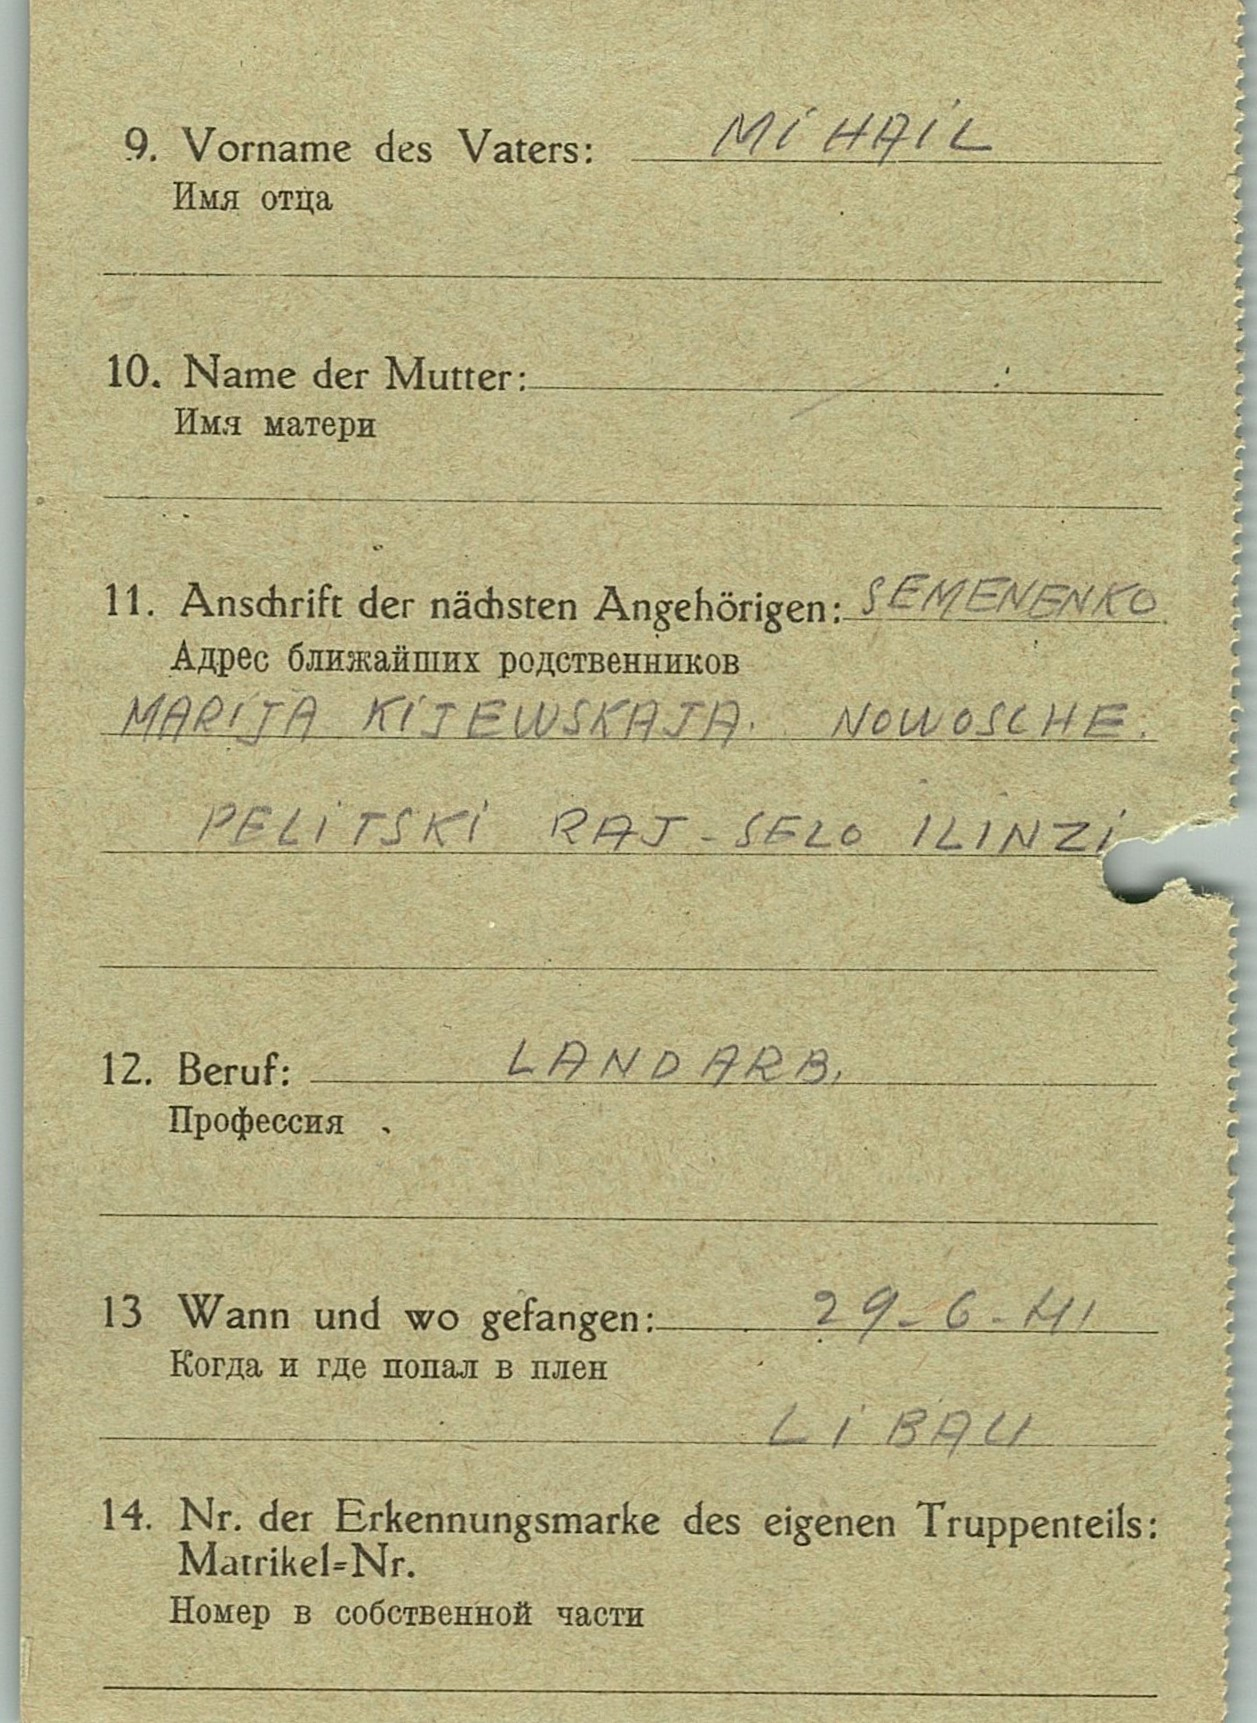 9. Vorname des Vaters: MIHAIL
Имя отца
10. Name der Mutter:
Имя матери
11. Anschrift der nächsten Angehörigen: SEMENENKO
Адрес ближайших родственников
MARIJA KIJEWSKAJA. NOWOSCHE.
PELITSKI RAJ - SELO ILINZI
12. Beruf: LANDARB.
Профессия
13 Wann und wo gefangen: 29-6-41
Когда и где попал в плен
LIBAU
14. Nr. der Erkennungsmarke des eigenen Truppenteils:
Matrikel=Nr.
Номер в собственной части